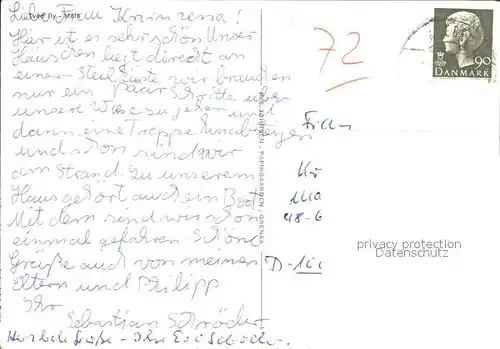 Liebe Frau
Hier ist es sehr schön. Unser
Häuschen liegt direkt an
einer Steilküste wir brauchen
nur ein paar Schritte über
unsere Wiese zu gehen und
dann eine Treppe hinabsteigen
und schon sind wir
am Strand. Zu unserem
Haus gehört auch ein Boot
Mit dem sind wir schon
einmal gefahren. Schöne
Grüße auch von meinen
Eltern und Philipp
Ihr
Sebastian Schröder.
Herzliche Grüße - Ihre Schröder.
PAPIRGAARDEN, GRENAA
72
90
DANMARK
48-6
D-1
privacy protection
Datenschutz